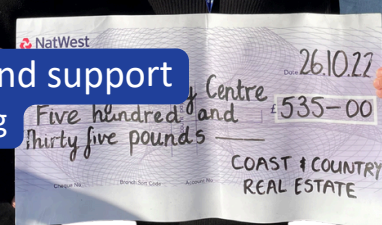 NatWest
nd support
Date 26.10.22
y Centre
g
Five hundred and
£ 535-00
Thirty five pounds
COAST & COUNTRY
REAL ESTATE
Cheque No. Branch Sort Code Account No.